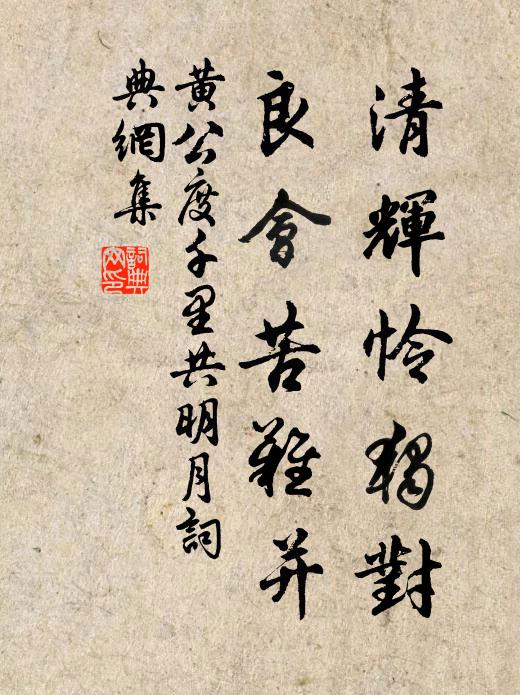 清輝怜獨對
良會苦難并
黄公度千里共明月詞
典網集
詞典
网印